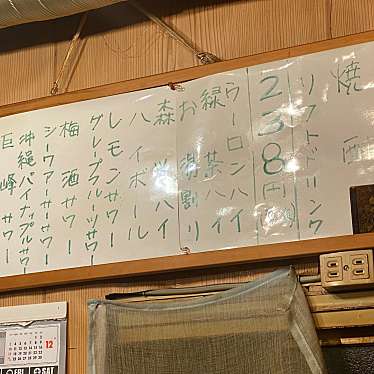 焼酎
ソフトドリンク
238円
ウーロンハイ
緑茶ハイ
お湯割り
森
ハイボール
レモンサワー
グレープフルーツサワー
梅酒サワー
シークワーサーサワー
沖縄パイナップルサワー
巨峰サワー
12
FRI
SAT